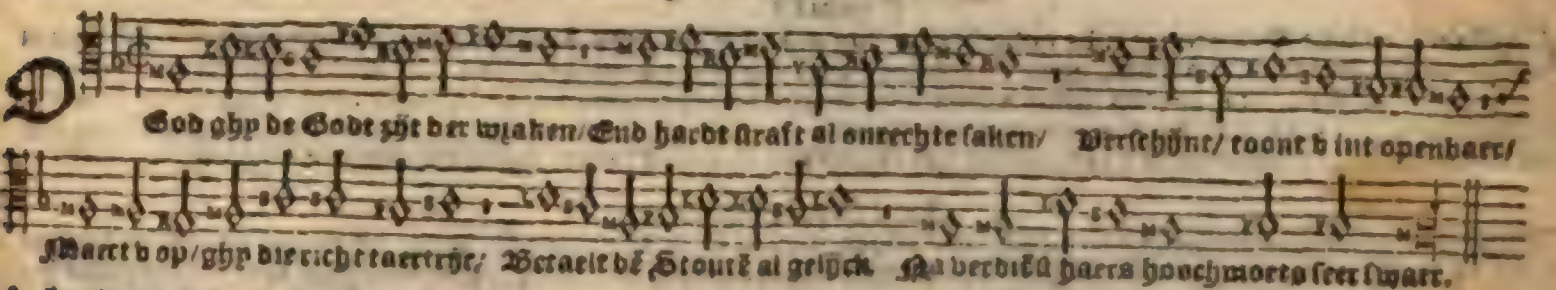 O God ghy de Godt zijt der wraken/ End hardt straft al onrechte saken/ Verschijne/ toont v int openbaer/
Maect v op/ ghy die richt taertrijc/ Betaelt dē Stoutē al gelijck Na verdiēst haers hoochmoets seer swaer.